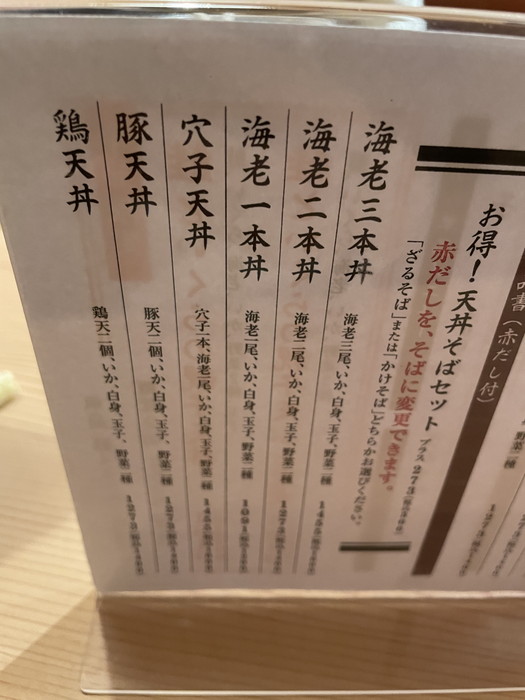 吹書(赤だし付)
お得!天丼そばセット プラス273
赤だしを、そばに変更できます。
「ざるそば」または「かけそば」どちらかお選びください。
海老三本丼 海老三尾、いか、白身、玉子、野菜二種 1455
海老二本丼 海老二尾、いか、白身、玉子、野菜二種 1273
海老一本丼 海老一尾、いか、白身、玉子、野菜二種 1091
穴子天丼 穴子一本、海老一尾、いか、白身、玉子、野菜二種 1455
豚天丼 豚天二個、いか、白身、玉子、野菜二種 1273
鶏天丼 鶏天二個、いか、白身、玉子、野菜二種 1273